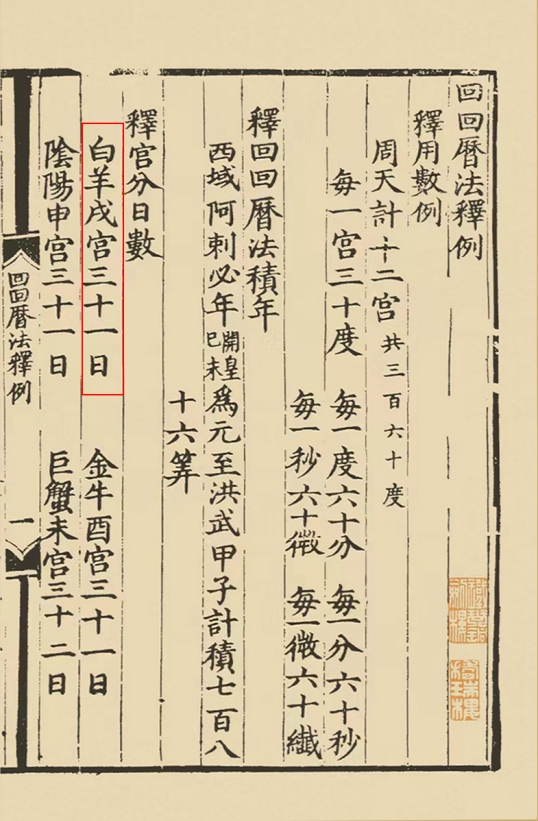 回回曆法釋例
釋用數例
周天計十二宮共三百六十度
每一宮三十度 每一度六十分 每一分六十秒
每一秒六十微 每一微六十纖
釋回回曆法積年
西域阿剌必年開皇己未為元至洪武甲子計積七百八
十六筭
釋宮分日數
白羊戌宮三十一日 金牛酉宮三十一日
陰陽申宮三十一日 巨蟹未宮三十二日
回回曆法釋例 一